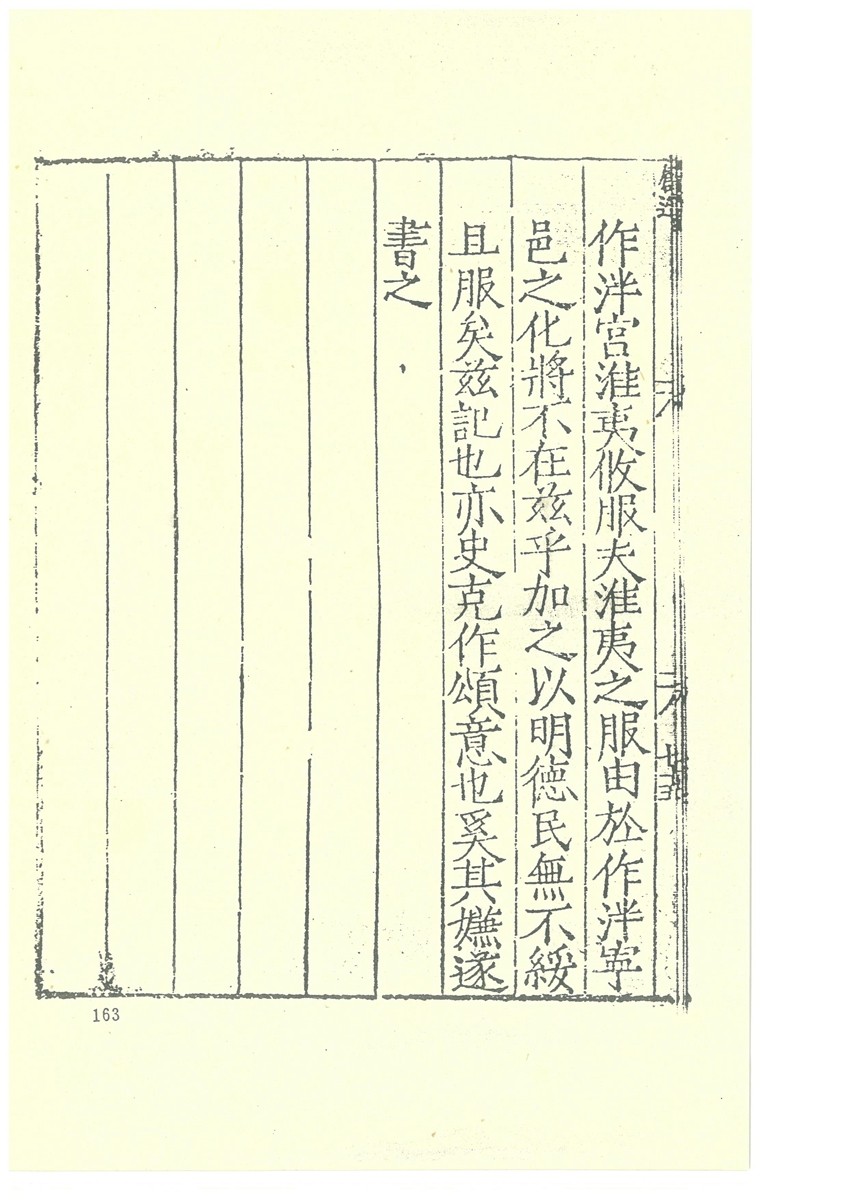 作泮宮淮夷攸服夫淮夷之服由於作泮寧
邑之化將不在茲乎加之以明德民無不綏
且服矣茲記也亦史克作頌意也奚其嫌遂
書之
163